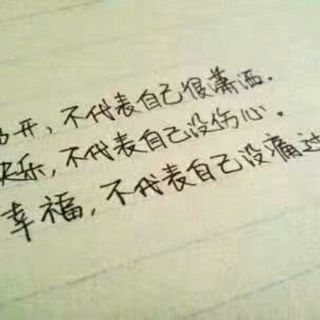 开，不代表自己很潇洒.
快乐，不代表自己没伤心。
幸福，不代表自己没痛过